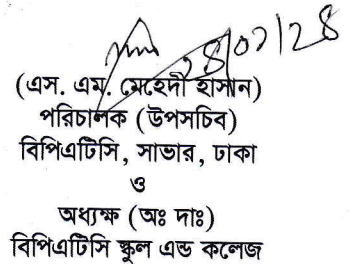 ২৪/০৭/২৪
(এস. এম. মেহেদী হাসান)
পরিচালক (উপসচিব)
বিপিএটিসি, সাভার, ঢাকা
ও
অধ্যক্ষ (অঃ দাঃ)
বিপিএটিসি স্কুল এন্ড কলেজ